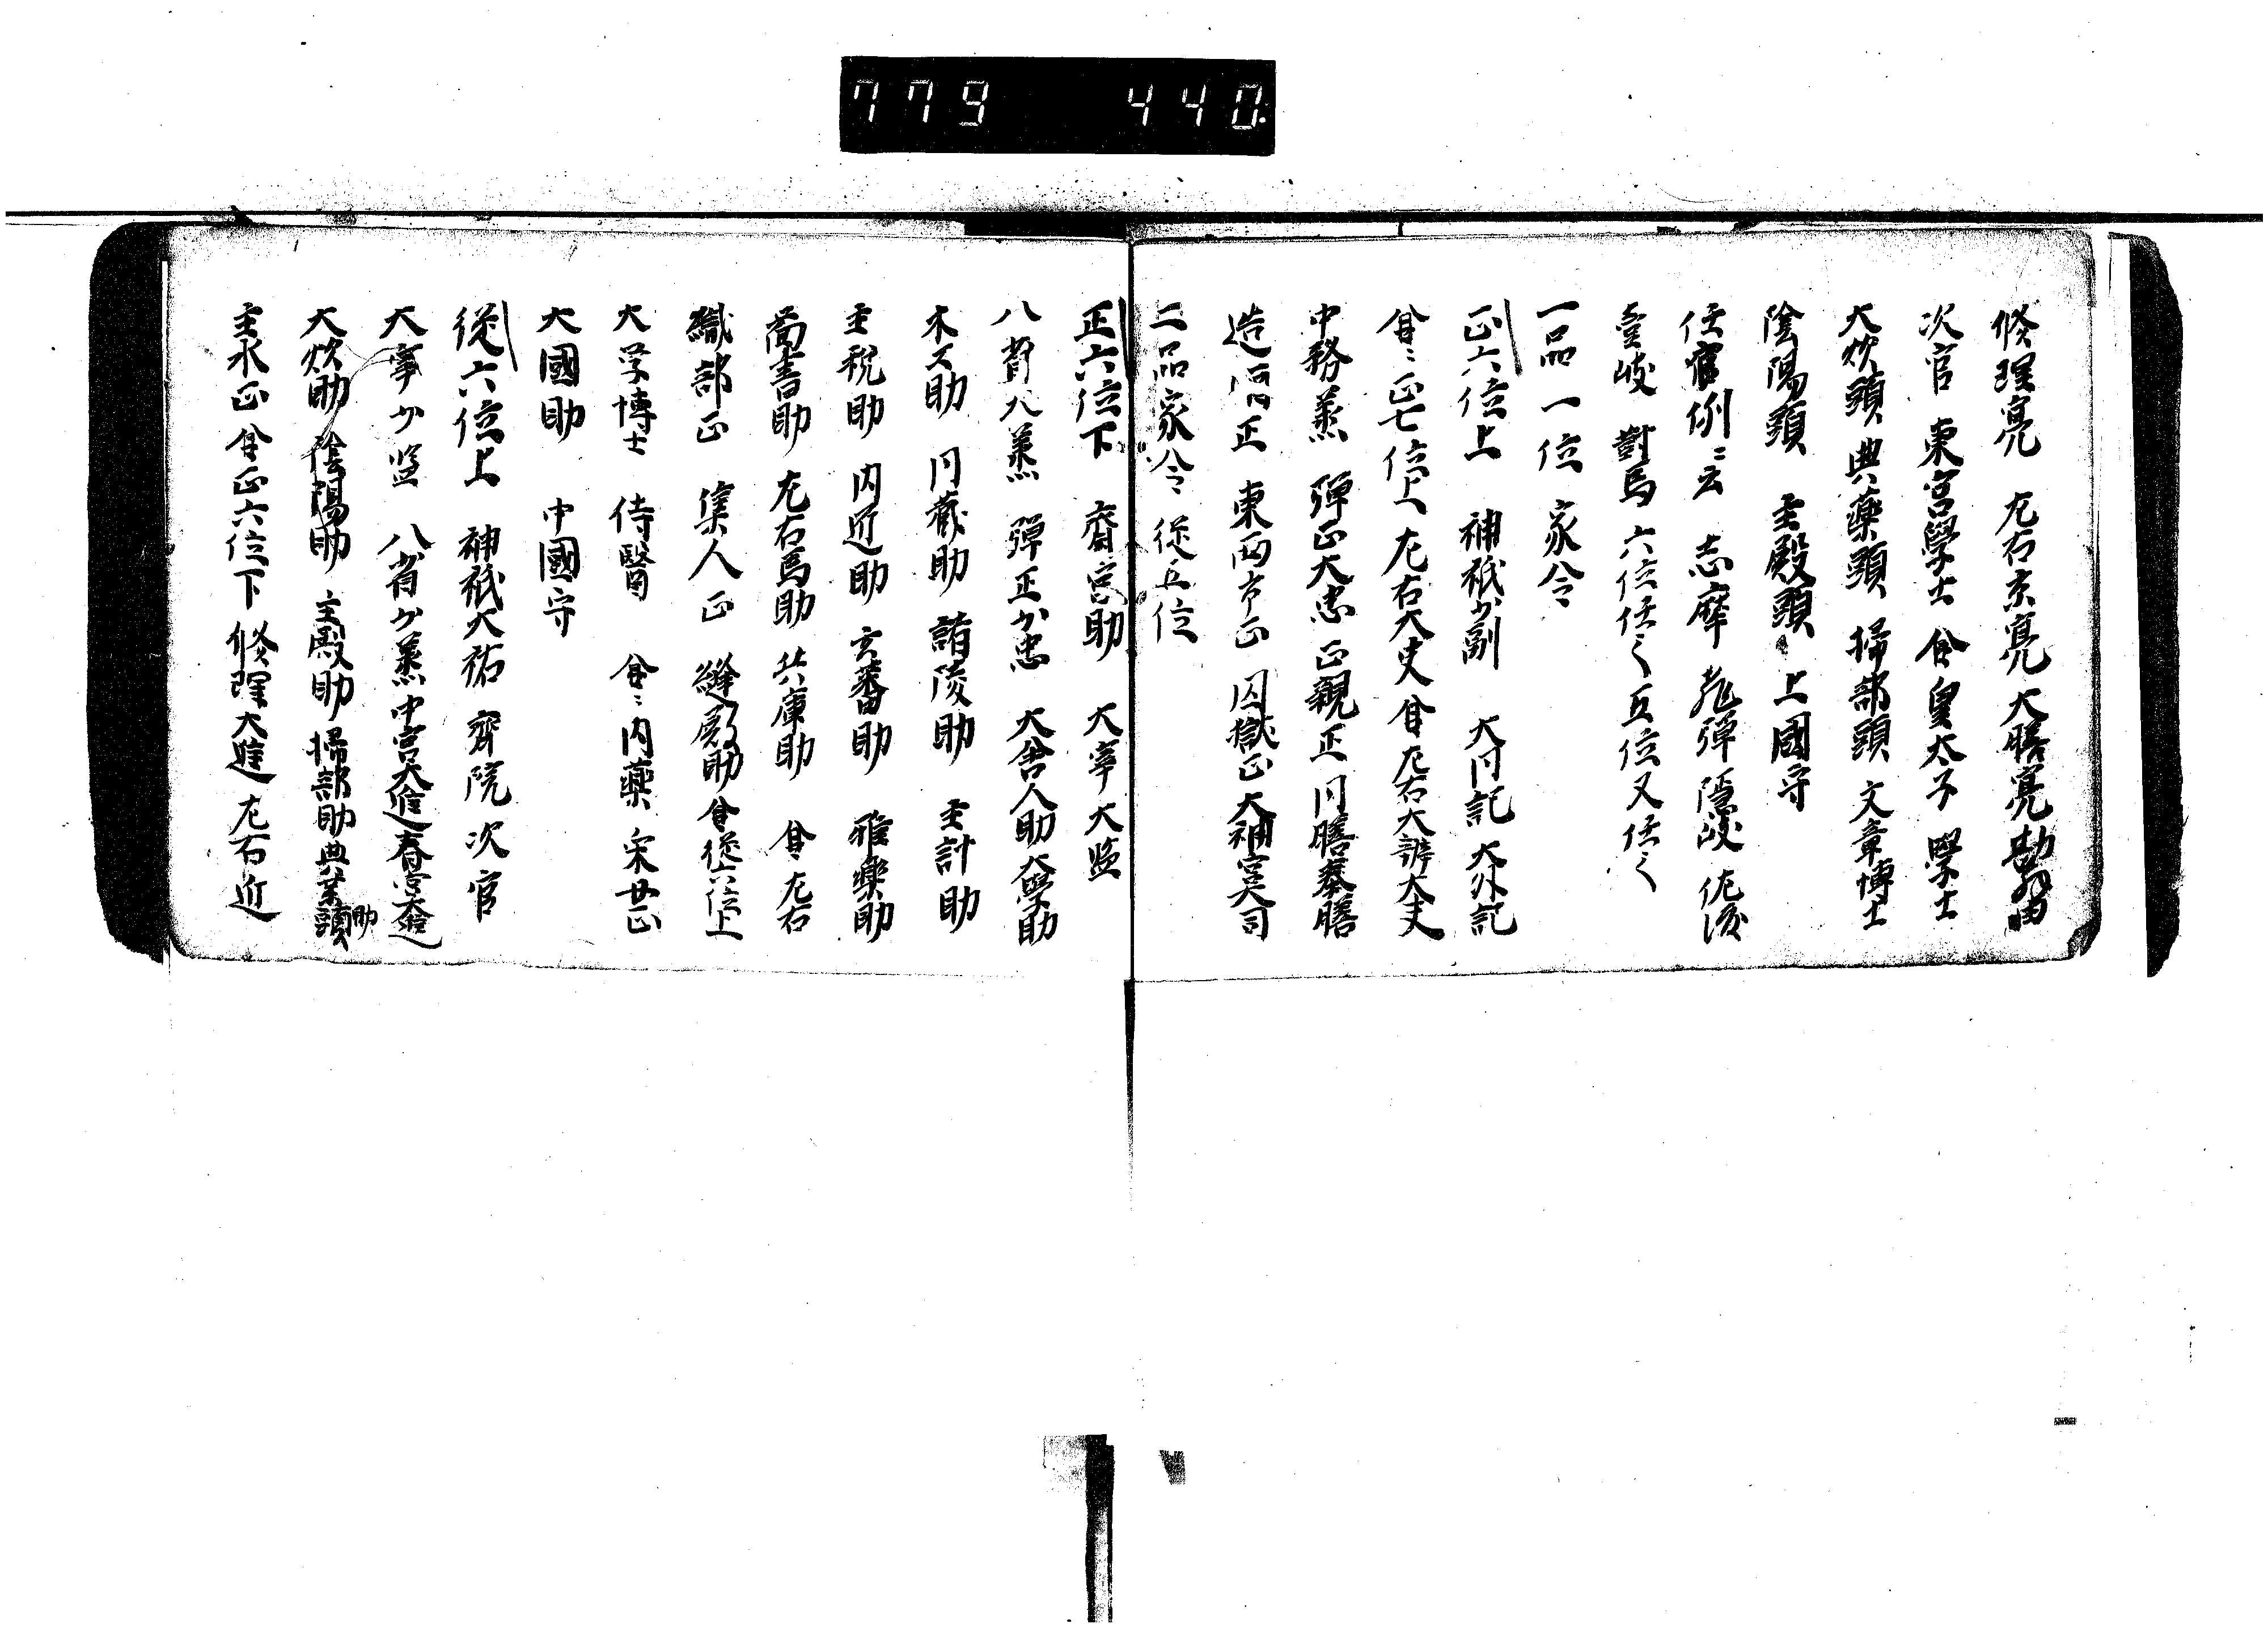 779 440
修理亮 左右京亮 大膳亮 勘解由
次官 東宮學士 今皇太子學士
大炊頭 典藥頭 掃部頭 文章博士
陰陽頭 主殿頭 上國守
任官例ニ云 志摩 飛彈 隠岐 佐渡
壹岐 對馬 六位任之五位又任之
一品一位家令
正六位上 神祇少副 大内記 大外記
令ニ正七位上 左右大史 令左右大辨大史
中務丞 弾正大忠 正親正 内膳奉膳
造酒正 東西市正 囚獄正 大神宮大司
二品家令 従五位
正六位下 齋宮助 大宰大監
八省大丞 弾正少忠 大舎人助 大學助
木工助 内蔵助 諸陵助 主計助
主税助 内匠助 玄蕃助 雅樂助
圖書助 左右馬助 兵庫助 令左右
織部正 隼人正 縫殿助 令従六位上
大学博士 侍醫 令ニ内藥
大國助 中國守
従六位上 神祇大祐 齋院次官
大宰少監 八省少丞 中宮大進 春宮大進
大炊助 陰陽助 主殿助 掃部助 典薬頭助
主水正 令正六位下 修理大進 左右近